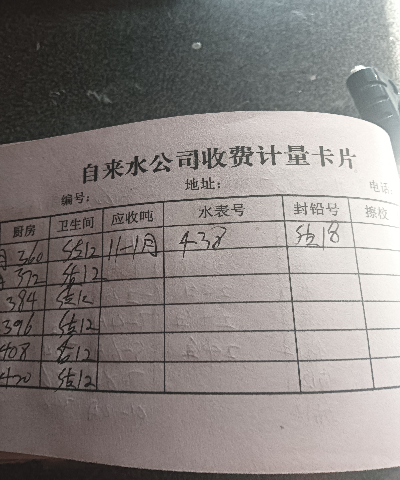 自来水公司收费计量卡片
编号: 地址: 电话
厨房 卫生间 应收吨 水表号 封铅号
月 360 结12 11-1月 438 结18
372 结12
384 结12
396 结12
408 结12
420 结12